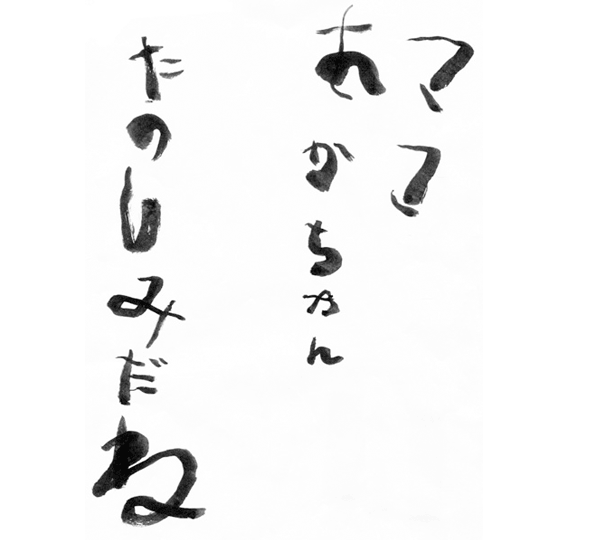 ママ
あかちゃん
たのしみだね